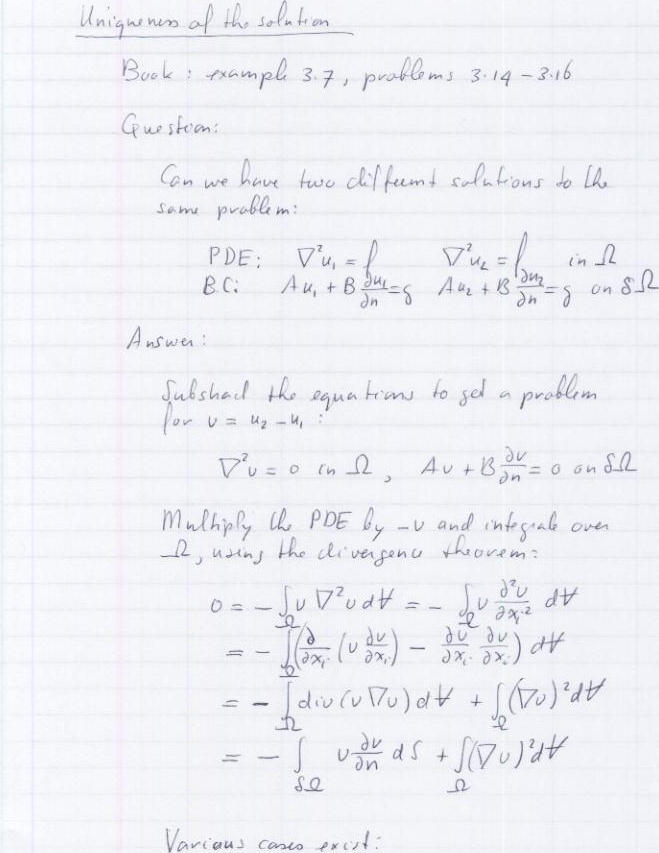 Uniqueness of the solution
Book : example 3.7, problems 3.14 – 3.16
Question:
Can we have two different solutions to the
same problem:
PDE: ∇²u₁ = f ∇²u₂ = f in Ω
B.C: Au₁ + B ∂u₁/∂n = g Au₂ + B ∂u₂/∂n = g on δΩ
Answer:
Substract the equations to get a problem
for v = u₂ – u₁ :
∇²v = 0 in Ω, Av + B ∂v/∂n = 0 on δΩ
Multiply the PDE by –v and integrate over
Ω, using the divergence theorem:
0 = – ∫_Ω v ∇²v dV = – ∫_Ω v ∂²v/∂xᵢ² dV
= – ∫_Ω (∂/∂xᵢ (v ∂v/∂xᵢ) – ∂v/∂xᵢ ∂v/∂xᵢ) dV
= – ∫_Ω div (v ∇v) dV + ∫_Ω (∇v)² dV
= – ∫_δΩ v ∂v/∂n dS + ∫_Ω (∇v)² dV
Various cases exist: